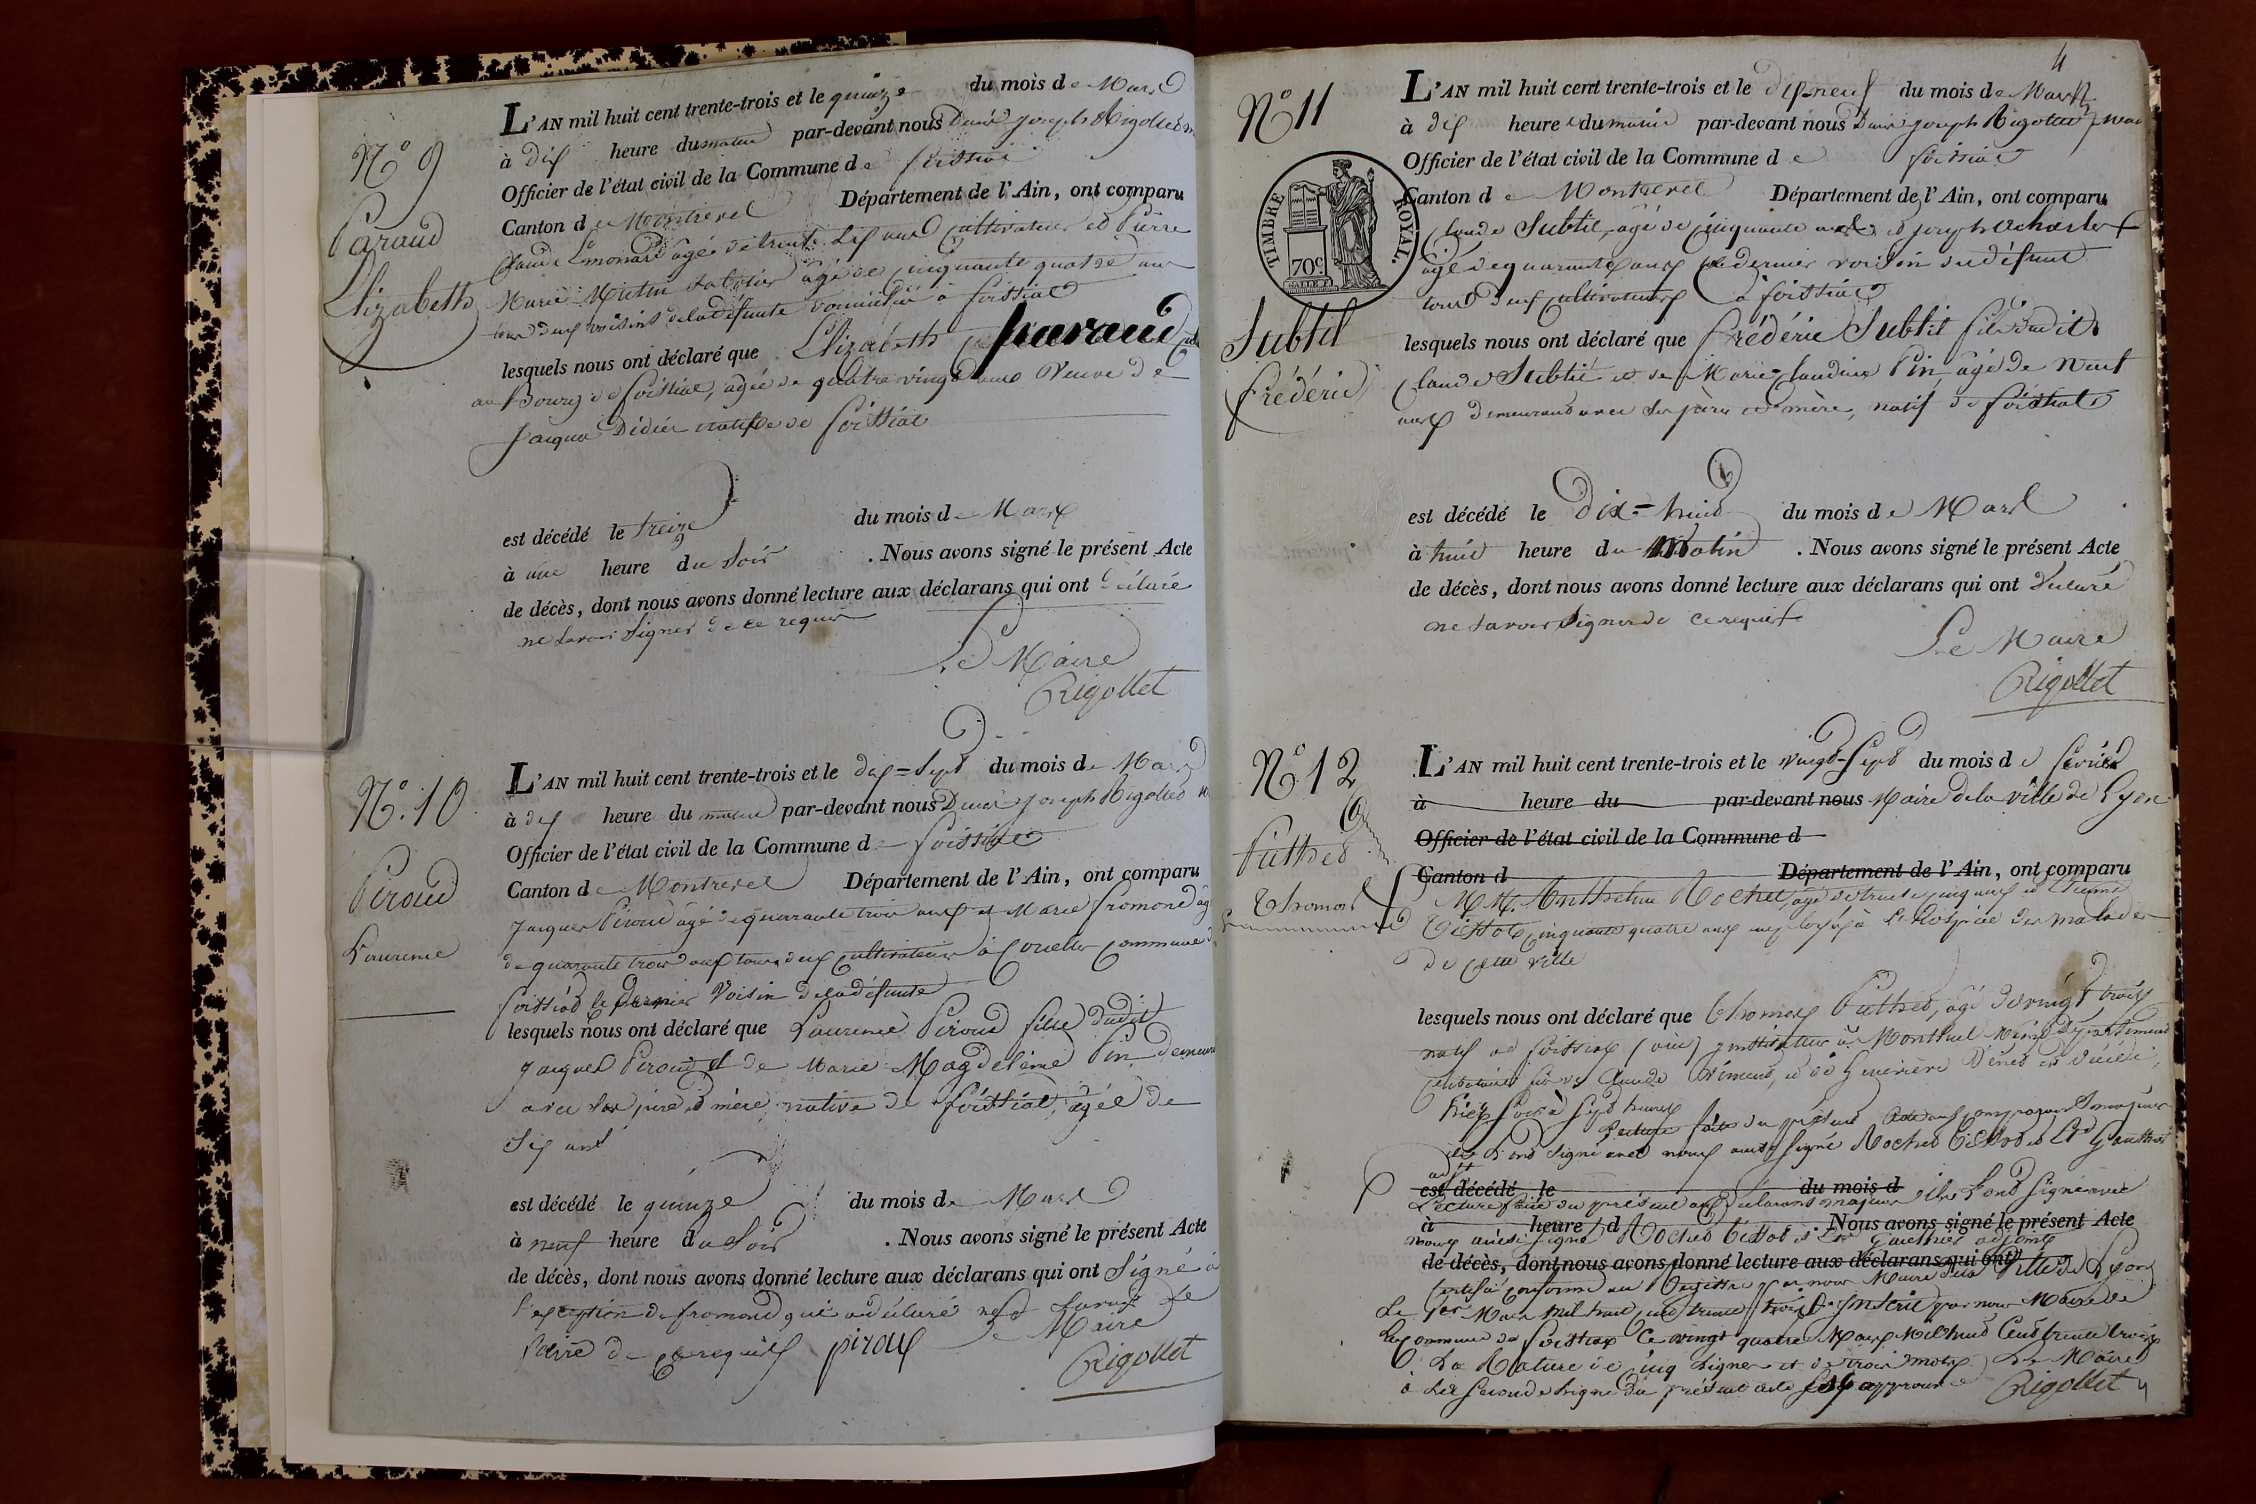 N.° 9
Paraud
Elizabeth
L'AN mil huit cent trente-trois et le quinze du mois de Mars
à dix heure du matin par-devant nous Denis Joseph Rigollet
Officier de l'état civil de la Commune de foissiat
Canton de Montrevel Département de l'Ain, ont comparu
Claude âgé de trente six ans Cultivateur et Pierre
Marie sabotier âgé de cinquante quatre ans
tous deux voisins de la défunte domiciliés à foissiat
lesquels nous ont déclaré que Elizabeth paraud
au Bourg de foissiat, agée de quatre vingt ans Veuve de
Jacque Didier native de foissiat
est décédé le treize du mois de Mars
à une heure du soir . Nous avons signé le présent Acte
de décès, dont nous avons donné lecture aux déclarans qui ont déclaré
ne savoir signer de ce requis
Le Maire
Rigollet
N.° 10
Piroud
Laurence
L'AN mil huit cent trente-trois et le dix=sept du mois de Mars
à dix heure du matin par-devant nous Denis Joseph Rigollet
Officier de l'état civil de la Commune de foissiat
Canton de Montrevel Département de l'Ain, ont comparu
Jacques Piroud âgé de quarante trois ans et Marie fromond âgé
de quarante trois ans tous deux cultivateurs à commune de
foissiat le dernier Voisin de la défunte
lesquels nous ont déclaré que Laurence Piroud fille dudit
Jacques Piroud et de Marie Magdeleine Pin demeurant
avec ses père et mère, native de foissiat, âgée de
six ans
est décédé le quinze du mois de Mars
à neuf heure du Soir . Nous avons signé le présent Acte
de décès, dont nous avons donné lecture aux déclarans qui ont Signé à
l'exception de fromond qui a déclaré ne savoir le
faire de ce requis piroud Le Maire
Rigollet
4
N° 11
TIMBRE ROYAL.
70c
Subtil
frédéric
L'AN mil huit cent trente-trois et le dix-neuf du mois de Mars
à dix heure du matin par-devant nous Denis Joseph Rigollet Maire
Officier de l'état civil de la Commune de foissiat
Canton de Montrevel Département de l'Ain, ont comparu
Claude Subtil, agé de cinquante ans et joseph
âgé de quarante ans ce dernier voisin du défunt
tous deux cultivateurs à foissiat
lesquels nous ont déclaré que frédéric Subtil fils dudit
Claude Subtil et de Marie Claudine Pin agé de neuf
ans demeurant avec ses père et mère, natif de foissiat
est décédé le Dix=huit du mois de Mars
à huit heure du Matin . Nous avons signé le présent Acte
de décès, dont nous avons donné lecture aux déclarans qui ont déclaré
ne savoir signer de ce requis
Le Maire
Rigollet
N° 12
Puthod
Thomas
L'AN mil huit cent trente-trois et le vingt-sept du mois de février
à heure du par-devant nous Maire de la ville de Lyon
Officier de l'état civil de la Commune d
Canton d Département de l'Ain, ont comparu
M.M. Anthelme Rochet, agé de trente cinq ans et Etienne
cinquante quatre ans employés à l'hospice des malades
de cette ville
lesquels nous ont déclaré que Thomas Puthod, âgé de vingt trois
natif de foissiat (ain) instituteur à Montluel même Département
célibataire fils de Claude et de Genevière est décédé
hier soir à sept heures
Lecture faite du présent Acte aux majeurs
ils l'ont signé avec nous ainsi signé Rochet et Gauthier
est décédé le du mois d
Lecture faite du présent aux déclarants majeurs ils l'ont signé avec
à heure d . Nous avons signé le présent Acte
nous ainsi signé Rochet et Gauthier adjoint
de décès, dont nous avons donné lecture aux déclarans qui ont
Certifié conforme au Registre par nous Maire de la Ville de Lyon
Le 1er Mars mil huit cent trente trois Inscrit par nous Maire de
la Commune de foissiat Ce vingt quatre Mars Mil huit Cent trente trois
La Rature de cinq lignes et de trois mots Le Maire
à la seconde ligne du présent acte approuvé Rigollet